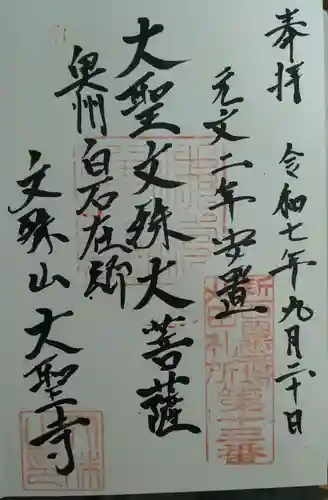 奉拝
令和七年九月二十日
元文二年安置
大聖文殊大菩薩
奥州白石在郷
文殊山大聖寺
第十三番